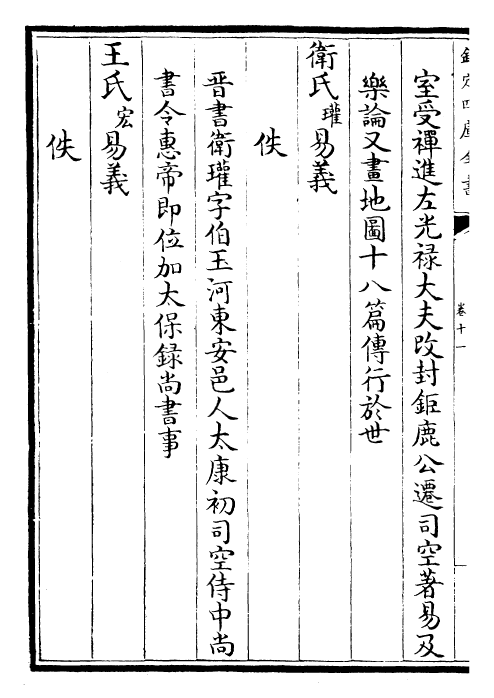 欽定四庫全書
卷十一
室受禪進左光禄大夫改封鉅鹿公遷司空著易及
樂論又畫地圖十八篇傳行於世
衛氏瓘易義
佚
晋書衛瓘字伯玉河東安邑人太康初司空侍中尚
書令惠帝即位加太保録尚書事
王氏宏易義
佚